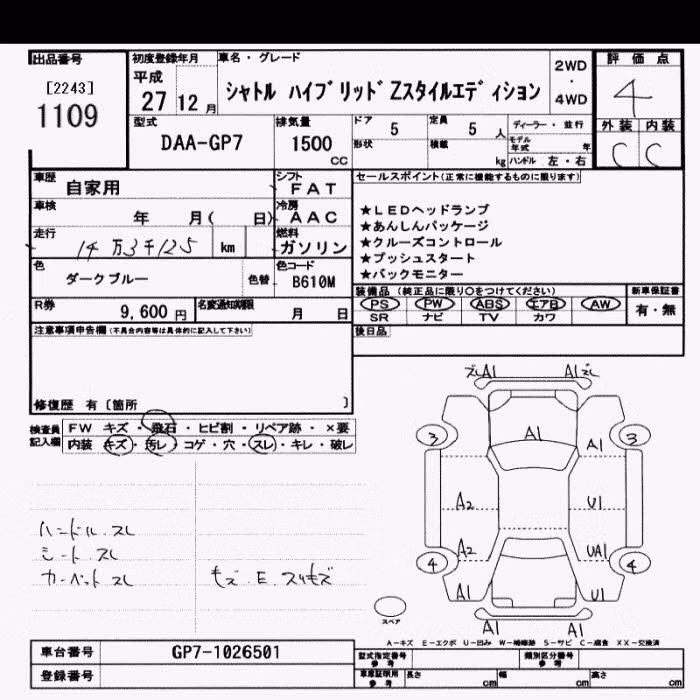 出品番号
[2243]
1109
初度登録年月
平成
27 12 月
車名・グレード
シャトル ハイブリッドZスタイルエディション
2WD
・
4WD
評価点
4
外装 内装
C C
型式
DAA-GP7
排気量
1500
CC
ドア 5
定員 5 人
形状
積載 kg
ディーラー・並行
モデル年式 年
ハンドル 左・右
車歴 自家用
シフト FAT
車検 年 月( 日)
冷房 AAC
走行 14万3千125 km
燃料 ガソリン
色 ダークブルー 色替
色コード B610M
R券 9,600 円
名変通知期限 月 日
セールスポイント(正常に機能するものに限ります)
★LEDヘッドランプ
★あんしんパッケージ
★クルーズコントロール
★プッシュスタート
★バックモニター
装備品(純正品に限り○をつけてください)
PS PW ABS エアB AW
SR ナビ TV カワ
新車保証書
有・無
後日品
注意事項申告欄(不具合内容等は具体的に記入して下さい)
修復歴 有〔箇所 〕
検査員記入欄
FW キズ・飛石・ヒビ割・リペア跡・×要
内装 キズ・汚レ・コゲ・穴・スレ・キレ・破レ
ハンドル.スレ
シート.スレ
カーペット スレ
A1 A1
3 3
A1 A1
A2 U1
A2 UA1
4 4
A1 U1
A1 A1
スペア
A-キズ E-エクボ U-凹み W-補修跡 S-サビ C-腐食 XX-交換済
車台番号 GP7-1026501
登録番号
型式指定番号 参考
類別区分番号 参考
車庫証明用 参考
長さ cm
幅 cm
高さ cm